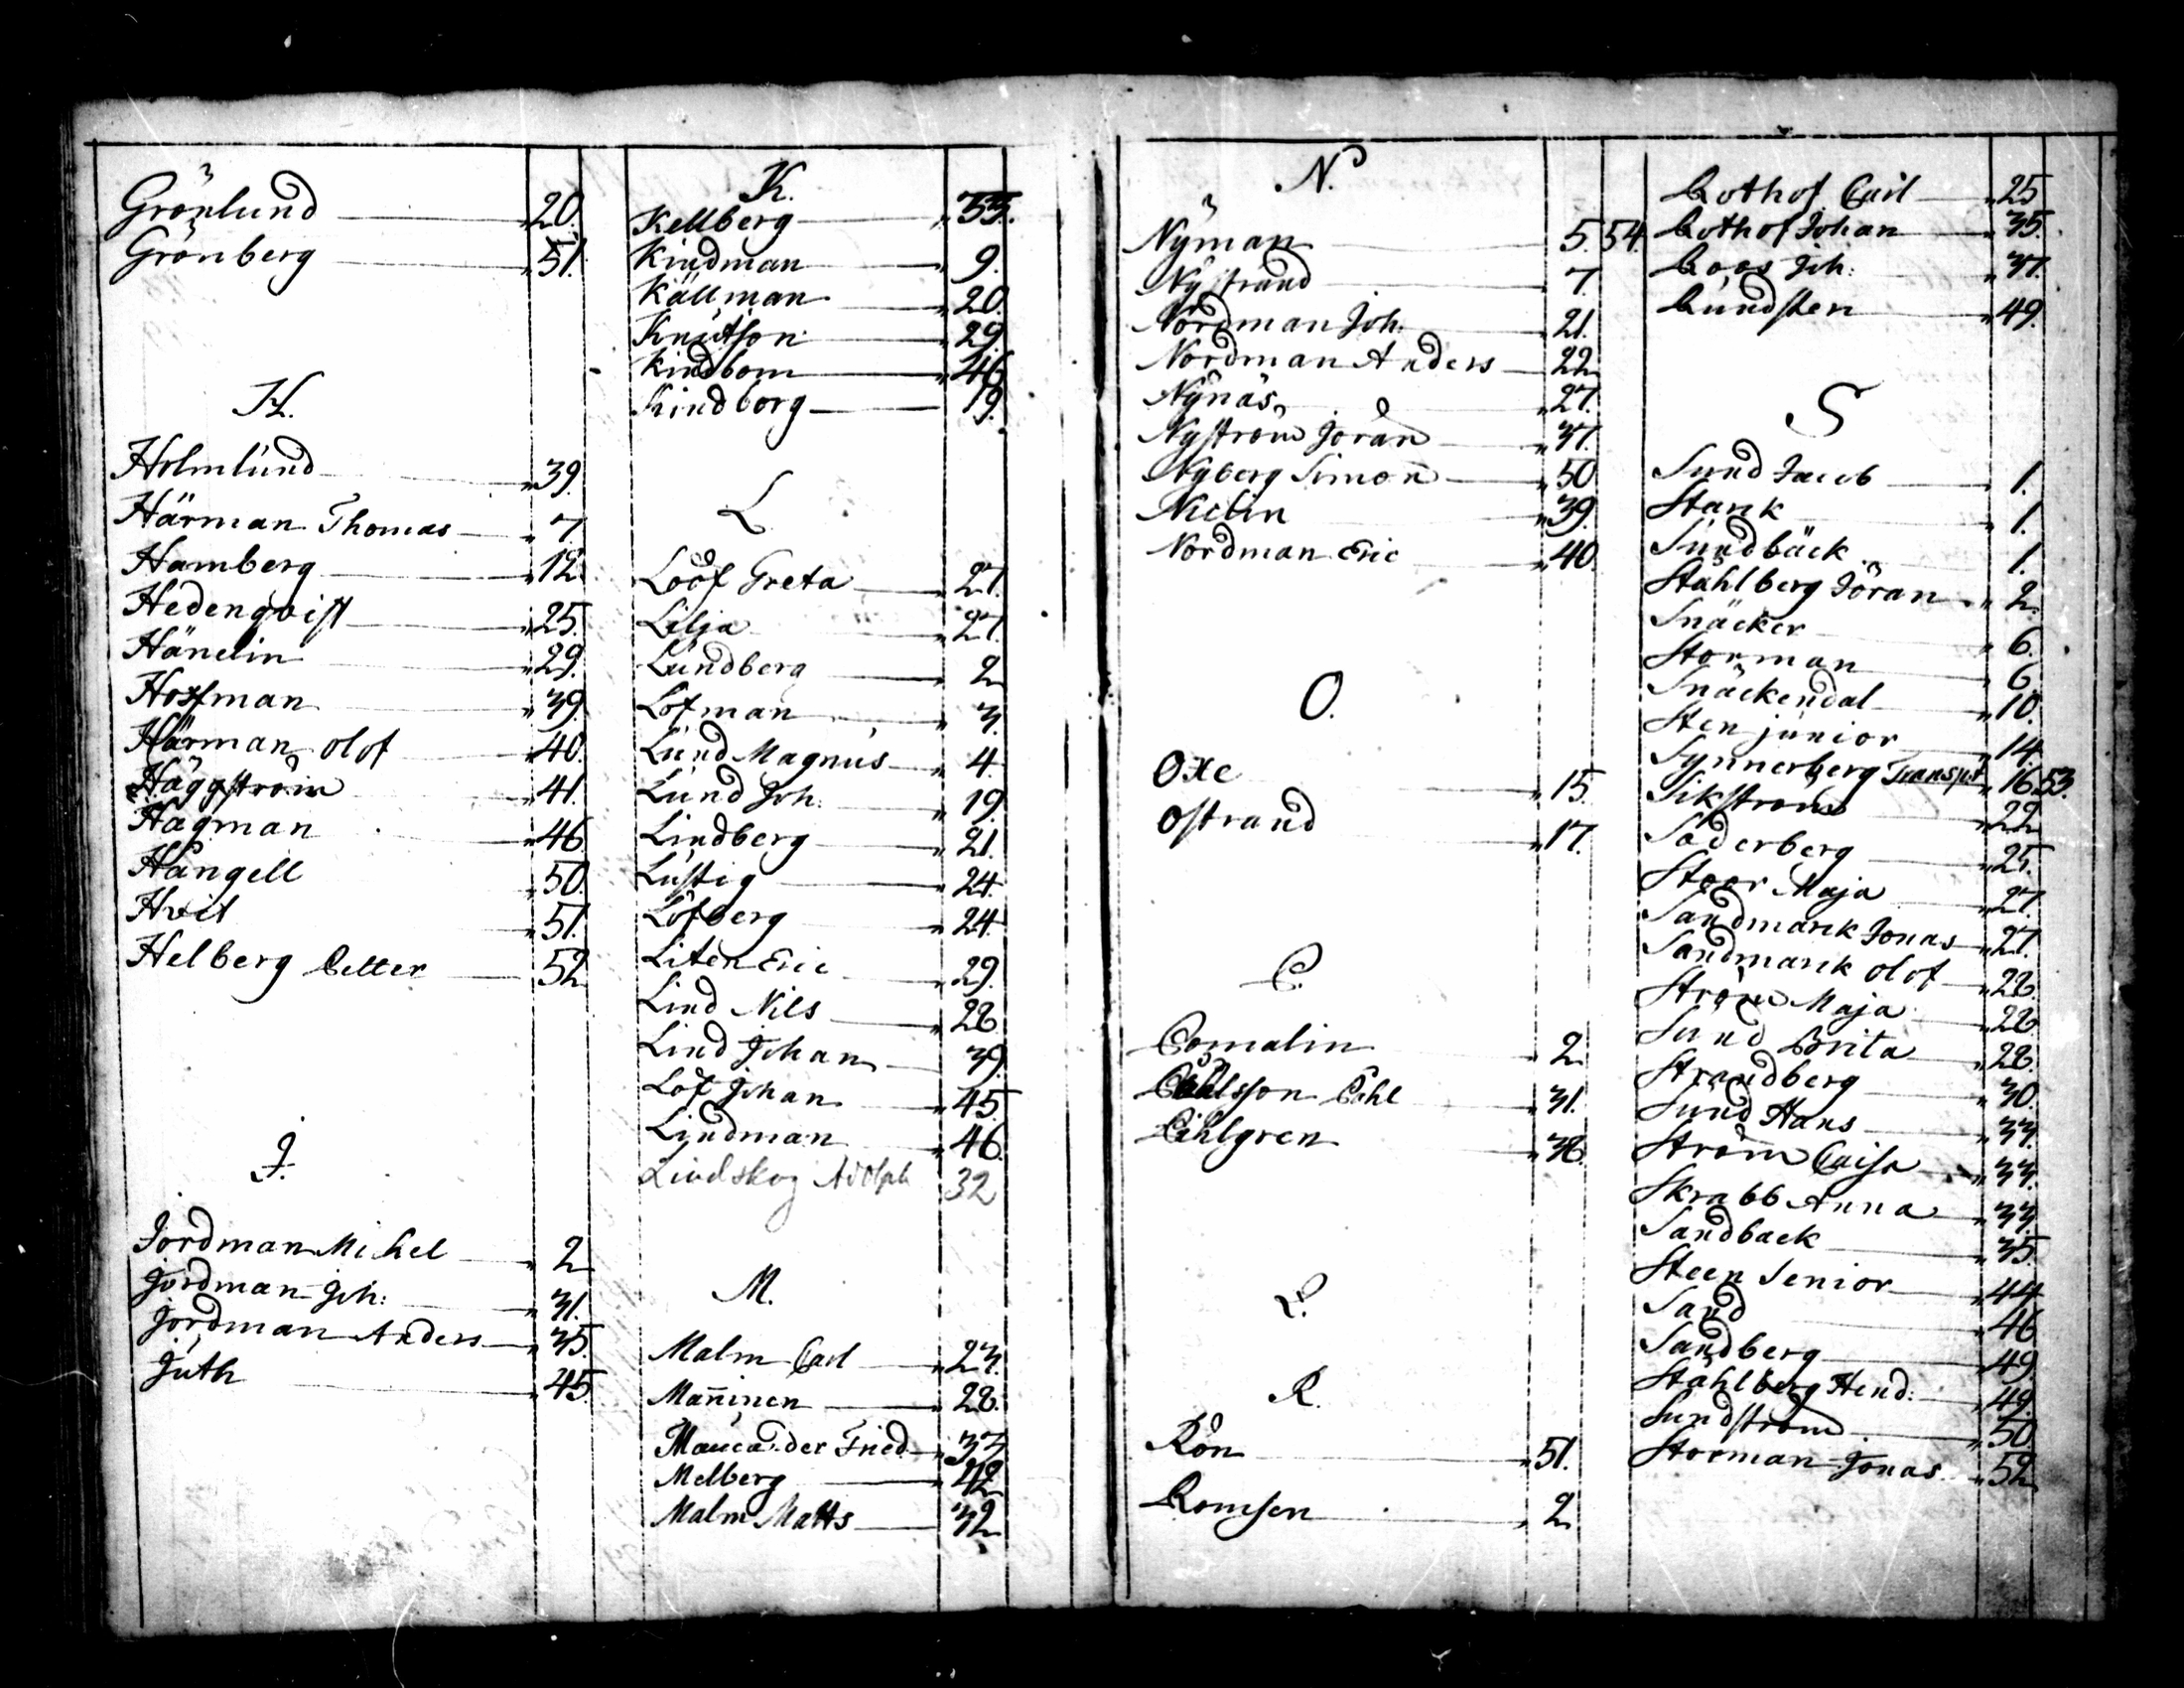 Grönlund 20.
Grönberg 51.
H.
Holmlund 39.
Härman Thomas 7.
Hamberg 12.
Hedenqvist 25.
Hänelin 29.
Hoffman 39.
Härman olof 40.
Häggström 41.
Hagman 46.
Hångell 50.
Hvit 51.
Helberg Petter 52
J.
Jordman Mihel 2
Jordman Joh: 31.
Jordman Anders 35.
Juth 45.
K.
Kellberg
Kindman 9.
Källman 20.
Knutson 29.
Kindbom 46
Kindborg 19.
L
Lööf Greta 27.
Lilja 27.
Lundberg 2
Löfman 3.
Lund Magnus 4.
Lund Joh: 19.
Lindberg 21.
Lustig 24.
Löfberg 24.
Liten Eric 29.
Lind Nils 28
Lind Johan 39.
Löf Johan 45.
Lindman 46.
Lindskog Adolph 32
M.
Malm Carl 23.
Mañinen 28.
Fried 33.
Melberg 42
Malm Matts 32
N.
Nyman 5. 54
Nystrand 7.
Nordman Joh: 21.
Nordman Anders 22
Nynäs 27.
Nyström Jöran 37.
Nyberg Simon 50
Nielin 39.
Nordman Eric 40
O.
Oxe 15.
Ostrand 17.
P.
Pomalin 2
Pihl 31.
Pihlgren 38.
R.
Rön 51.
Romsen 2
Rothof Carl 25
Rothof Johan 35.
Roos Joh: 37.
Rundsten 49.
S
Sund Jacob 1.
Stark 1.
Sundbäck 1.
Ståhlberg Jöran 2
Snäcker 6.
Storman 6
Snäckendal 10.
Sten junior 14.
Synnerberg Transpt 16 53.
Sikström 22
Söderberg 25.
Stoor Maja 27.
Sandmark Jonas 27.
Sandmark olof 28.
Ström Maja 28.
Sund Brita 28.
Strandberg 30.
Sund Hans 33.
Ström Caisa 33.
Skrabb Anna 33.
Sandback 35.
Steen Senior 44
Sand 46
Sandberg 49.
Ståhlberg Hend: 49.
Sundström 50.
Storman Jonas 52